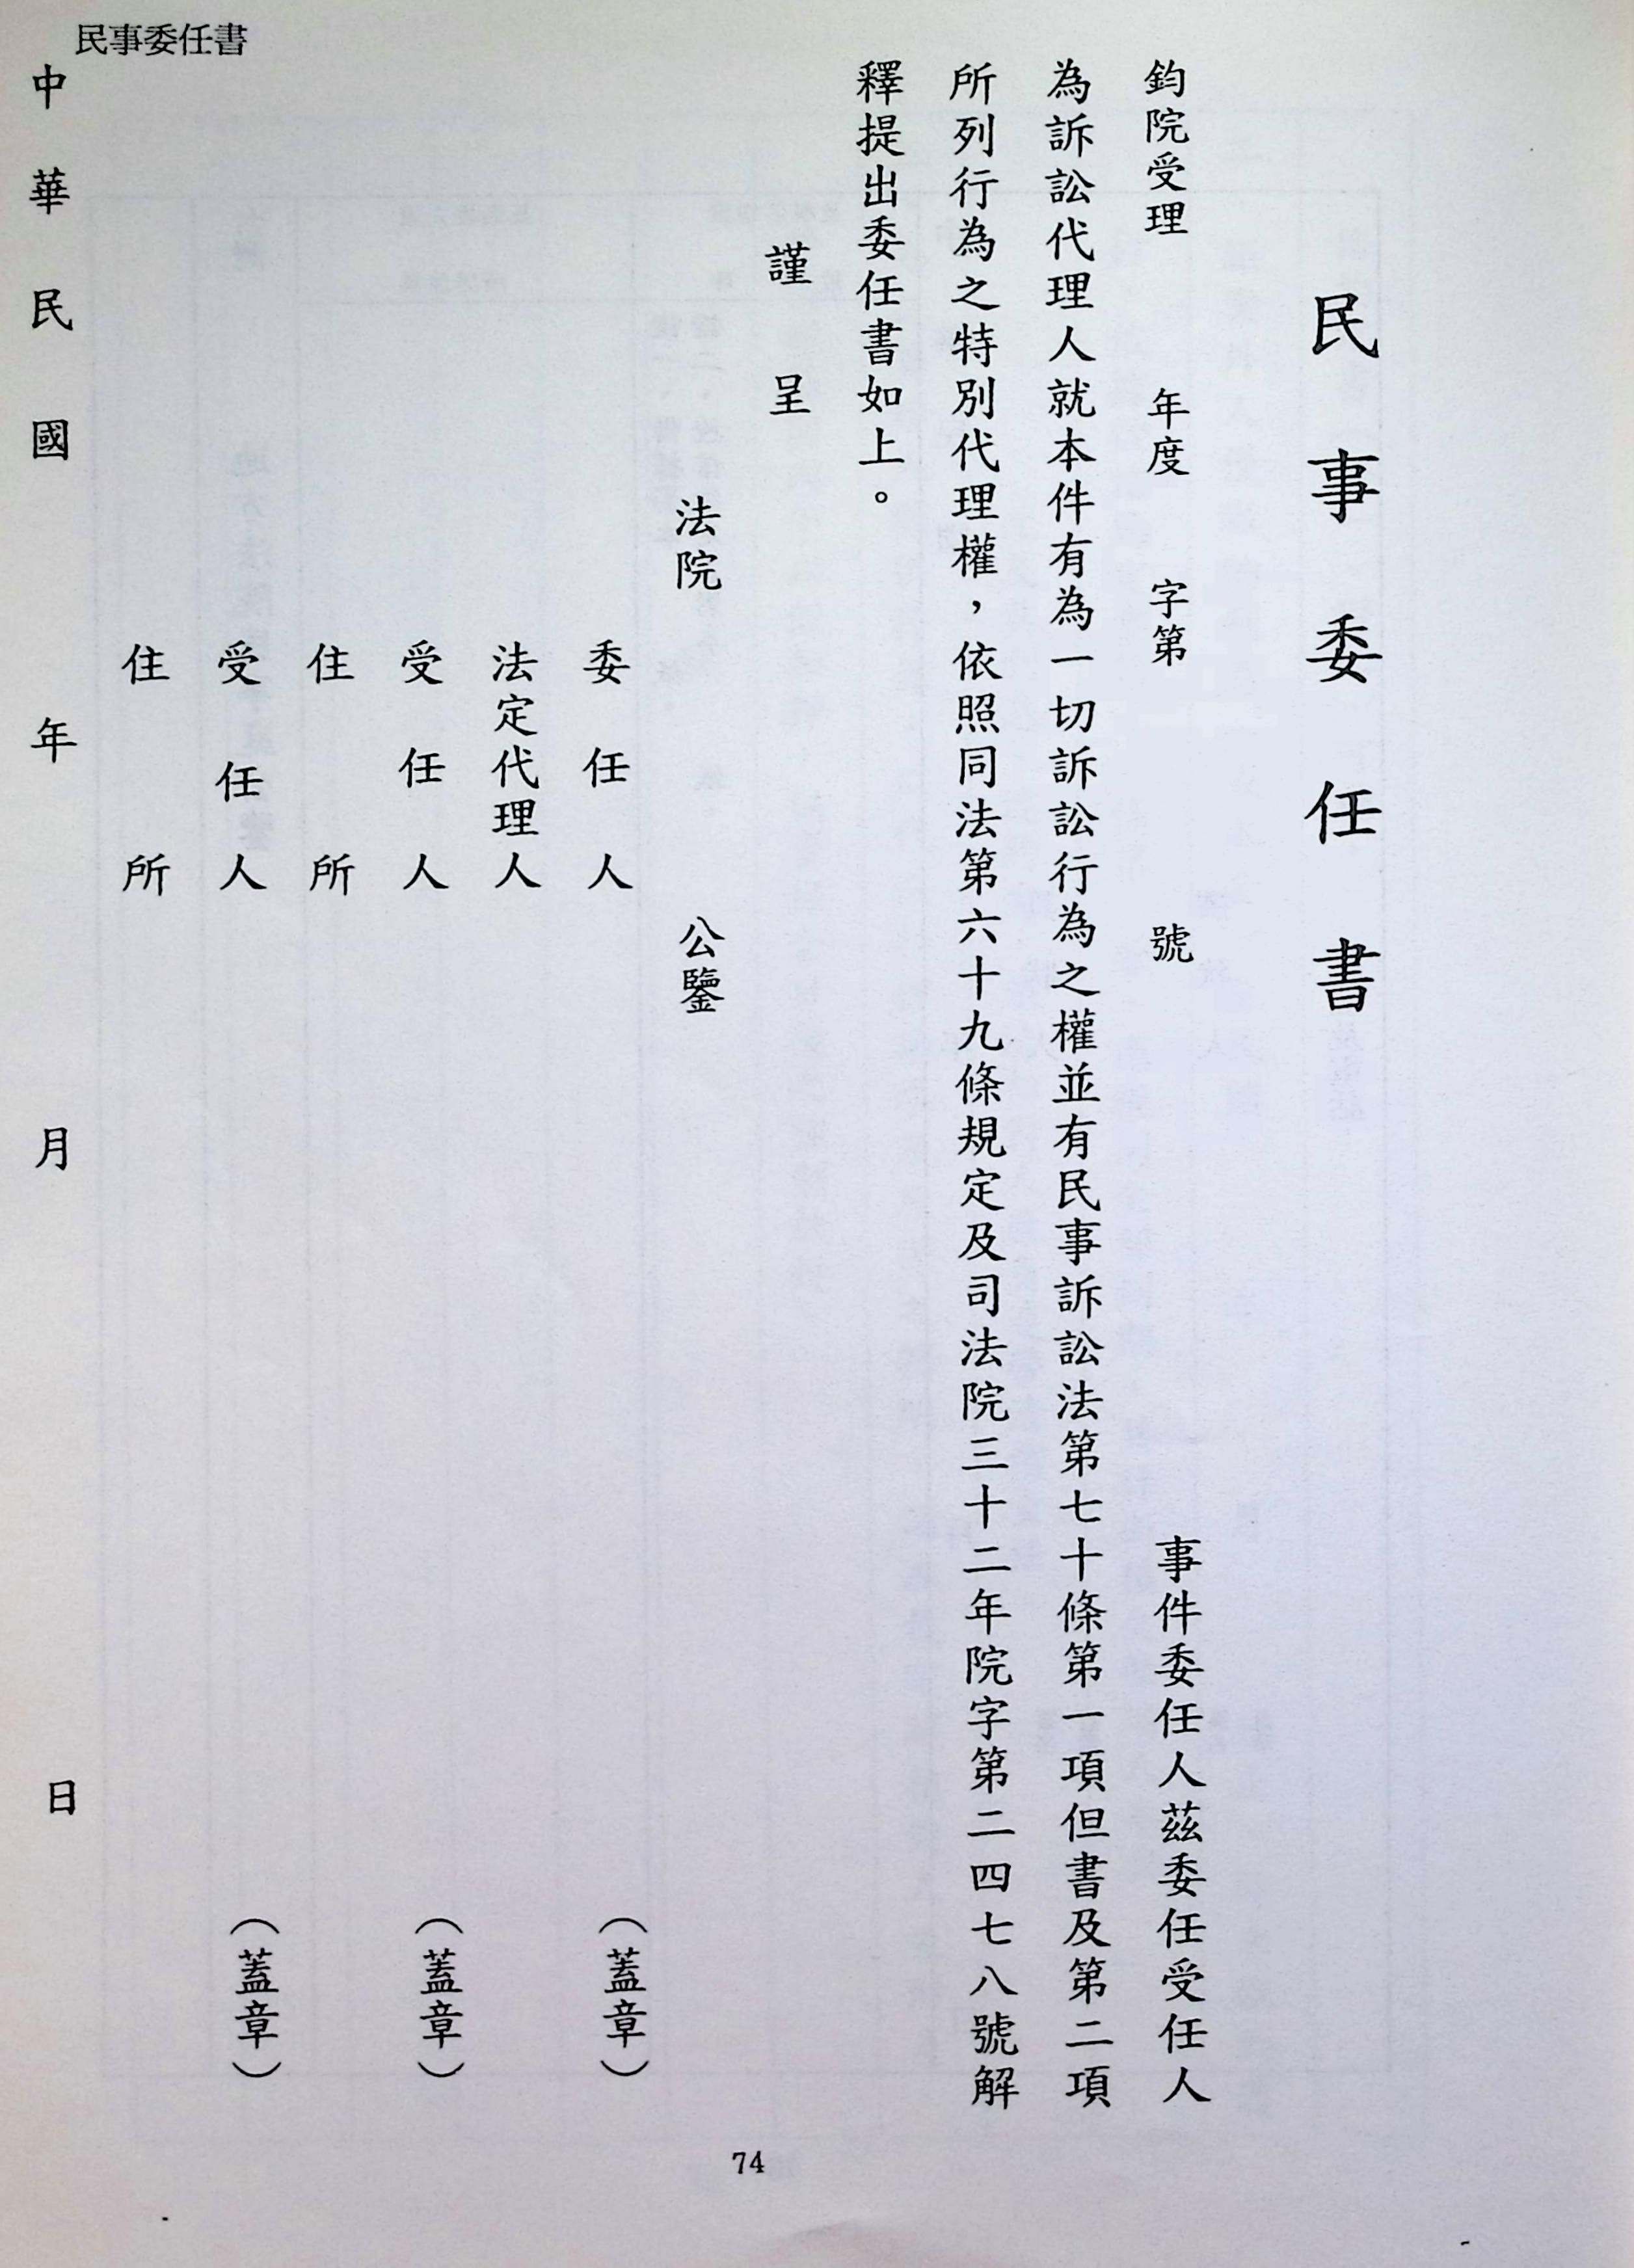 民事委任書
民事委任書
鈞院受理 年度 字第 號 事件委任人茲委任受任人
為訴訟代理人就本件有為一切訴訟行為之權並有民事訴訟法第七十條第一項但書及第二項
所列行為之特別代理權，依照同法第六十九條規定及司法院三十二年院字第二四七八號解
釋提出委任書如上。
謹呈
法院 公鑒
委任人 （蓋章）
法定代理人
受任人 （蓋章）
住所
受任人 （蓋章）
住所
中華民國 年 月 日
74